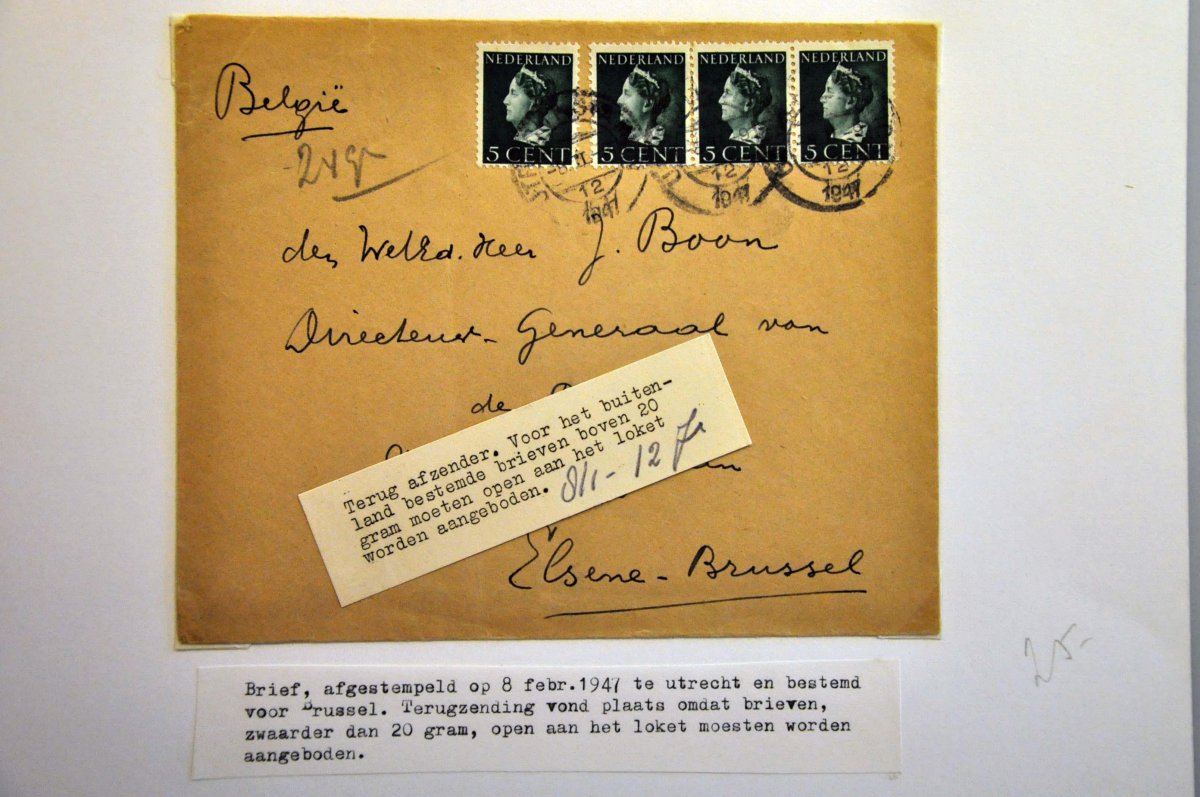 België
24gr
NEDERLAND NEDERLAND NEDERLAND NEDERLAND
5 CENT 5 CENT 5 CENT 5 CENT
12 12 12
1947 1947 1947
den WelEd. Heer J. Boon
Directeur-Generaal van
de
Terug afzender. Voor het buiten-
land bestemde brieven boven 20
gram moeten open aan het loket
worden aangeboden.
Elsene-Brussel
Brief, afgestempeld op 8 febr.1947 te utrecht en bestemd
voor Brussel. Terugzending vond plaats omdat brieven,
zwaarder dan 20 gram, open aan het loket moesten worden
aangeboden.
25-